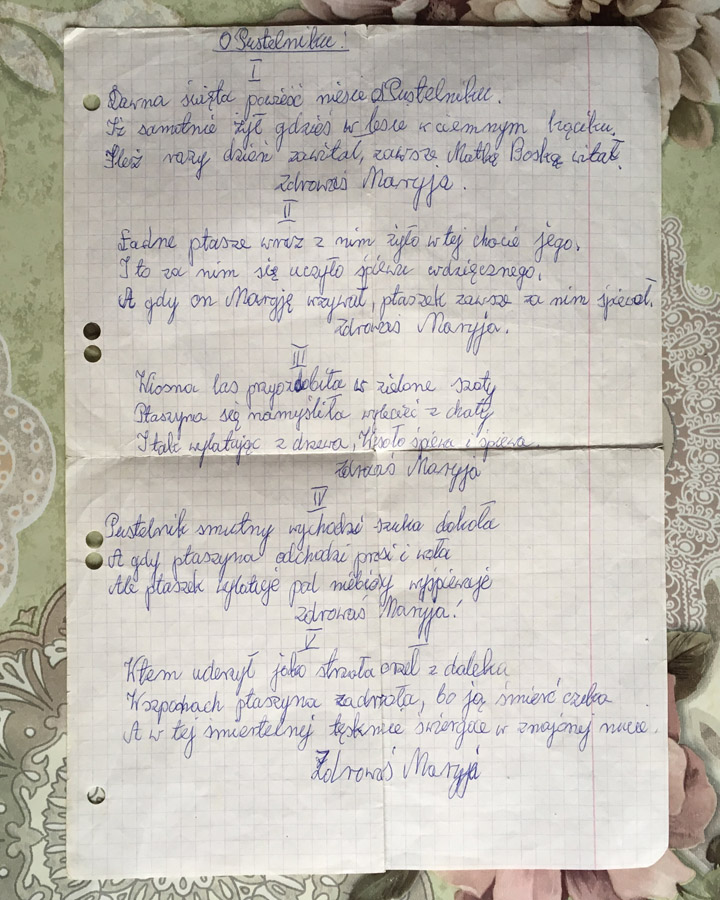 O Pustelniku!
I
Dawna święta powieść niesie o Pustelniku.
Iż samotnie żył gdzieś w lesie w ciemnym kąciku.
Ileż razy dzień zawitał, zawsze Matkę Boską witał.
Zdrowaś Maryja.
II
Ładne ptasze wraz z nim żyło w tej chacie jego.
I to za nim się uczyło śpiewu wdzięcznego.
A gdy on Maryję wzywał, ptaszek zawsze za nim śpiewał.
Zdrowaś Maryja.
III
Wiosna las przyozdobiła w zielone szaty
Ptaszyna się namyśliła wylecieć z chaty
I tak wylatując z drzewa, Wesoło śpiewa i śpiewa.
Zdrowaś Maryja
IV
Pustelnik smutny wychodzi szuka dokoła
A gdy ptaszyna odchodzi prosi i woła
Ale ptaszek wylatuje pod niebiosy wyśpiewuje
Zdrowaś Maryja!
V
Wtem uderzył jako strzała orzeł z daleka
W szponach ptaszyna zadrżała, bo ją śmierć czeka
A w tej śmiertelnej tęsknicie świergoce w znajomej nucie.
Zdrowaś Maryja